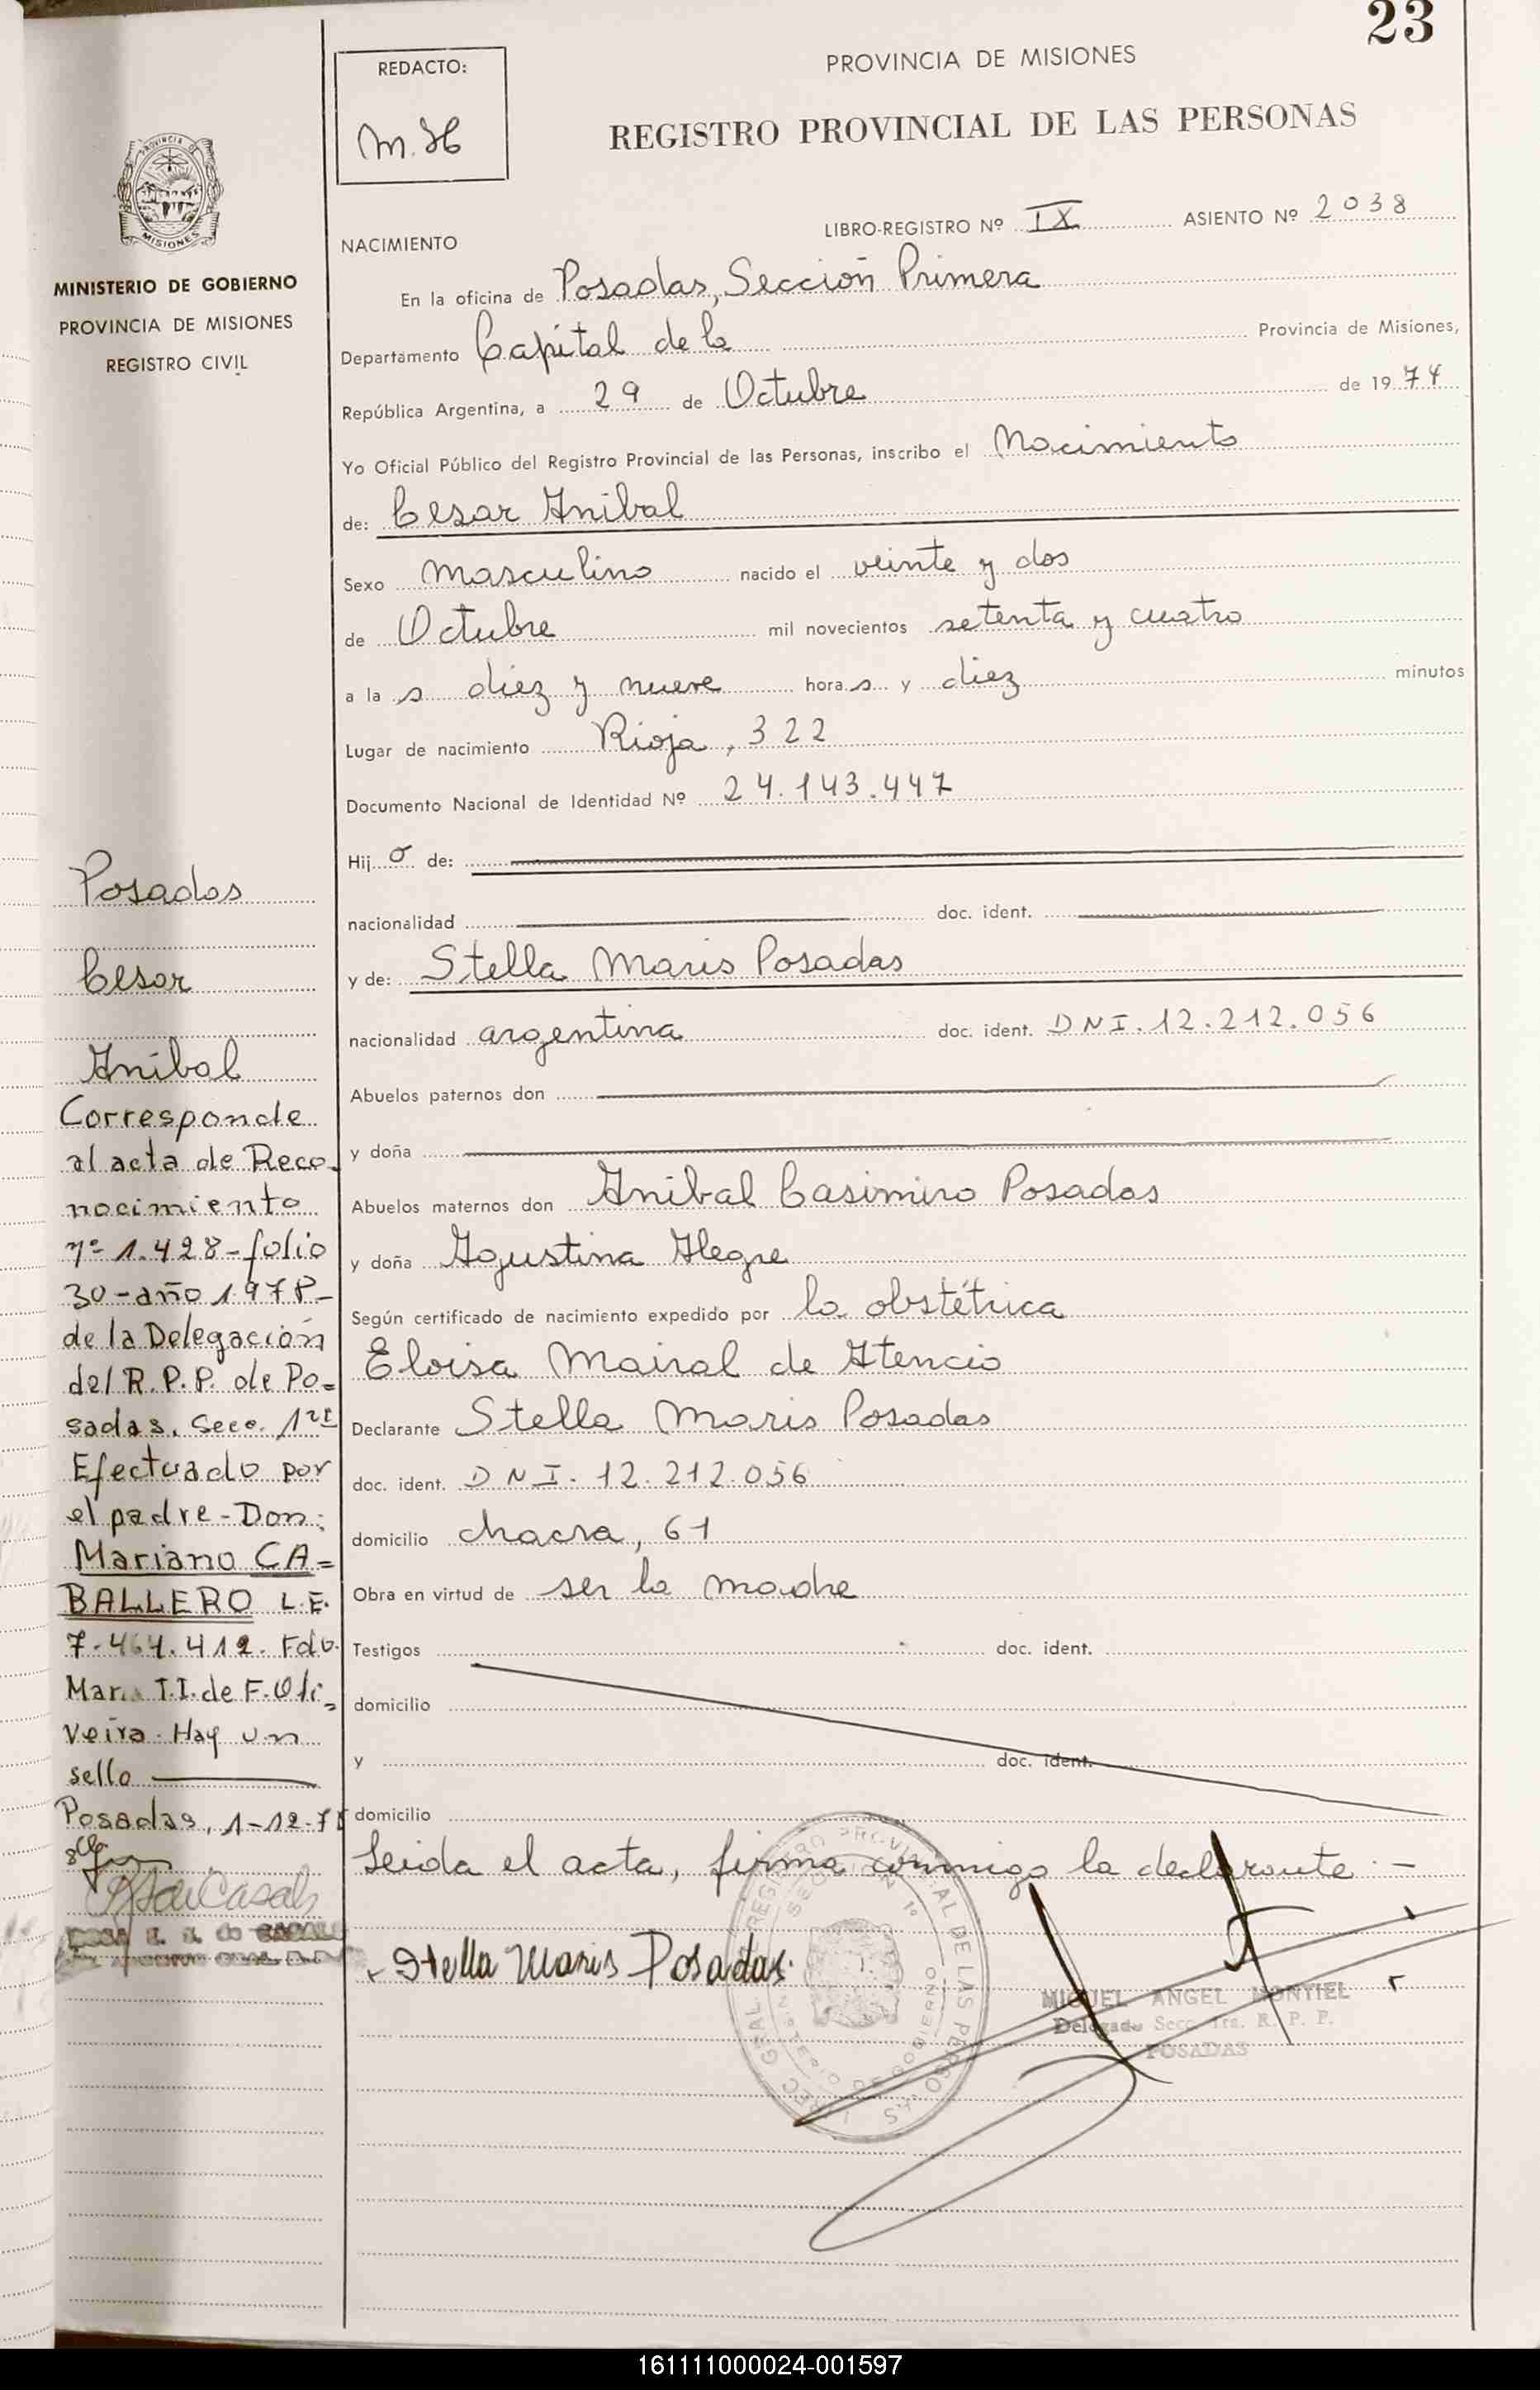 23
REDACTO:
M.H
PROVINCIA DE MISIONES
REGISTRO PROVINCIAL DE LAS PERSONAS
PROVINCIA D
MISIONES
MINISTERIO DE GOBIERNO
PROVINCIA DE MISIONES
REGISTRO CIVIL
LIBRO-REGISTRO Nº IX ASIENTO Nº 2038
NACIMIENTO
En la oficina de Posadas, Sección Primera
Departamento Capital de la Provincia de Misiones,
República Argentina, a 29 de Octubre de 1974
Yo Oficial Público del Registro Provincial de las Personas, inscribo el Nacimiento
de: Cesar Anibal
Sexo masculino nacido el veinte y dos
de Octubre mil novecientos setenta y cuatro
a la s diez y nueve hora s y diez minutos
Lugar de nacimiento Rioja, 322
Documento Nacional de Identidad Nº 24.143.447
Hij o de:
nacionalidad doc. ident.
y de: Stella Maris Posadas
nacionalidad argentina doc. ident. DNI. 12.212.056
Abuelos paternos don
y doña
Abuelos maternos don Anibal Casimiro Posadas
y doña Agustina Alegre
Según certificado de nacimiento expedido por la obstétrica
Eloisa Mairal de Atencio
Declarante Stella Maris Posadas
doc. ident. DNI. 12.212.056
domicilio chacra, 61
Obra en virtud de ser la madre
Testigos doc. ident.
domicilio
y doc. ident.
domicilio
Leida el acta, firma conmigo la declarante.-
Stella Maris Posadas.
MIGUEL ANGEL MONTIEL
Delegado Secc. 1ra. R. P. P.
POSADAS
Posadas
Cesar
Anibal
Corresponde
al acta de Reco-
nocimiento
nº 1.428-folio
30-año 1978-
de la Delegación
del R.P.P. de Po=
sadas. Secc. 1ra
Efectuado por
el padre-Don:
Mariano CA=
BALLERO L.E.
7.464.412. Fdo.
T.I. de F. Oli=
veira. Hay un
sello
Posadas, 1-12-78
161111000024-001597